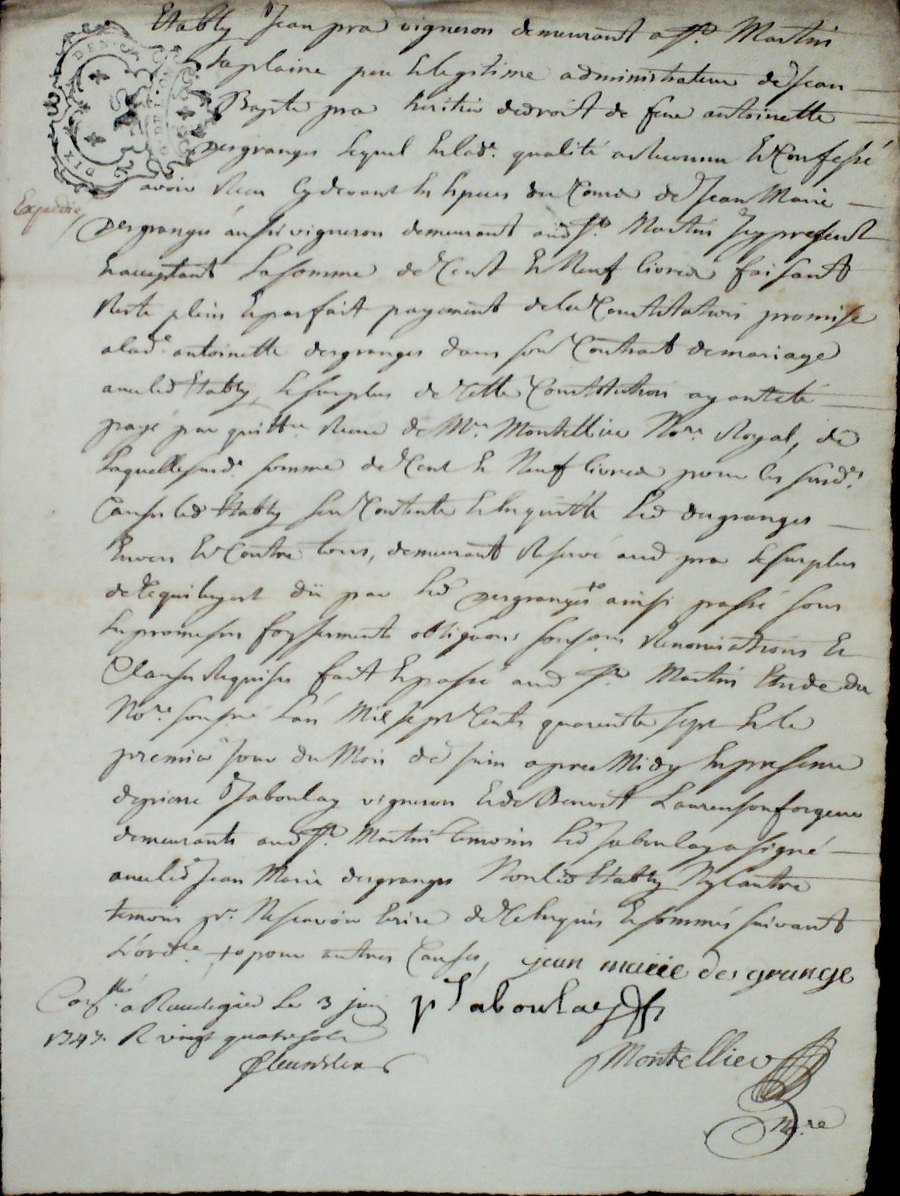 Etably Jean pra vigneron demeurant a St. Martin
laplaine pere et legitime administrateur de Jean
Bapte pra heritier dedroit de feue antoinette
Desgranges lequel en lade. qualité a reconnu Et Confessé
avoir Receu cydevant En Especes du Cours de Jean Marie
Desgranges aussi vigneron demeurant aud St. Martin Icy present
Et acceptant La somme de Cent Et Neuf livres faisant
Reste plein Et parfait payement de la Constitution promise
alade. antoinette desgranges dans son Contrat demariage
avec led Etably, le surplus de Celle Constitution ayant été
payé par quittce Receue de Mre. Montellier Nore. Royal, de
Laquelle susde. somme de Cent Et Neuf livres pour les susdes.
Causes led Etably sen Contente Et En quitte led desgranges
Envers Et Contre tous, demeurant Reservé aud pra Le surplus
de Ce qui luy est dû par led Desgranges + ainsi passé sous
Les promesses foy serments obligaons soumions Renonciations Et
Clauses Requises fait Et passé aud St. Martin Etude du
Nore. soussné Lan Mil sept Cents quarente sept Et le
premier Jour du Mois de Juin apres Midy En presence
depierre Jaboulay vigneron Et de Benoist Laurenson forgeur
demeurants aud St. Martin temoins led Jaboulay a signé
avec led Jean Marie desgranges Non led Etably Ny lautre
temoin pr. Ne scavoir Ecrire de Ce Enquis Et sommés suivant
L'ordce + pour autres Causes, jean marie des grange
Expedie
Conllé. a Le 3 juin p Jaboulay
1747. R vingt quatre sols
Montellier
Nore